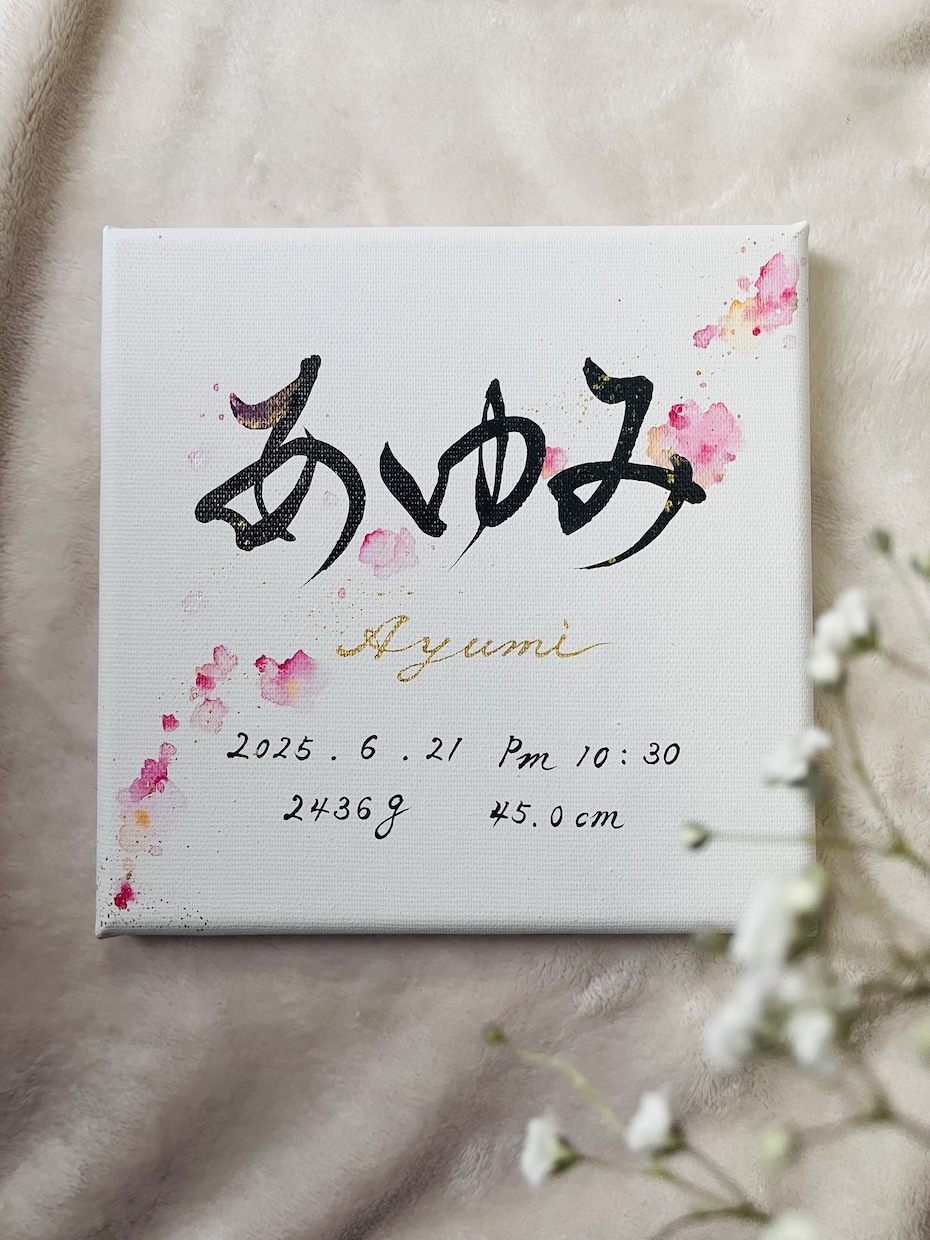 あゆみ
Ayumi
2025.6.21 Pm 10:30
2436g 45.0cm